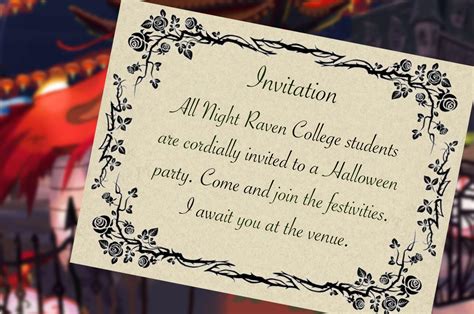 Invitation
All Night Raven College students
are cordially invited to a Halloween
party. Come and join the festivities.
I await you at the venue.